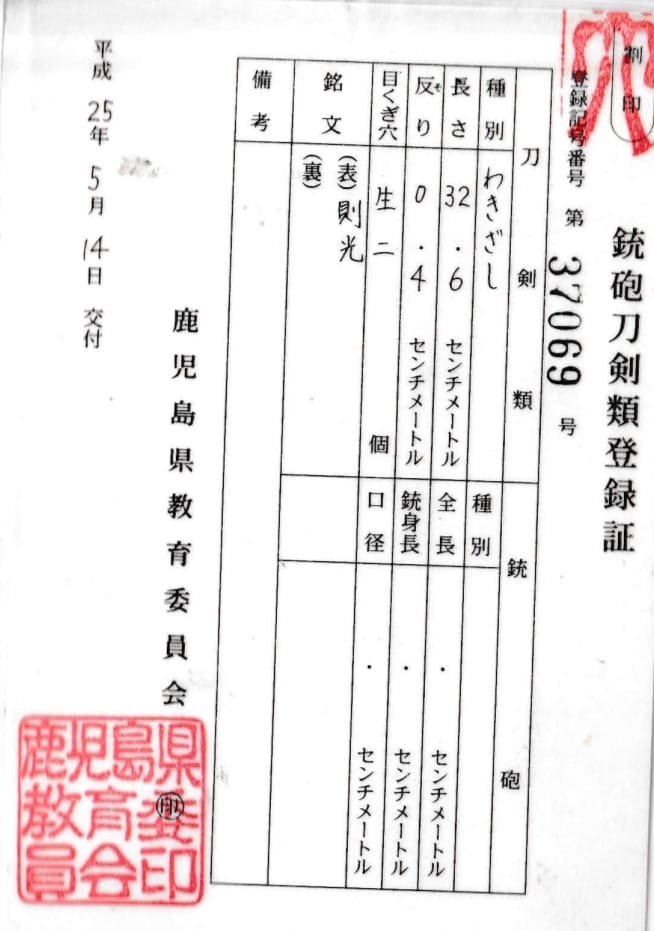 銃砲刀剣類登録証
割印
登録記号番号 第 37069 号
刀剣類
種別 わきざし
長さ 32.6 センチメートル
反り 0.4 センチメートル
そ
目くぎ穴 生二 個
銘文 (表) 則光
(裏)
備考
銃砲
種別
全長 . センチメートル
銃身長 . センチメートル
口径 . センチメートル
鹿児島県教育委員会
印
平成25年5月14日 交付
鹿児島県
教育委
員会印